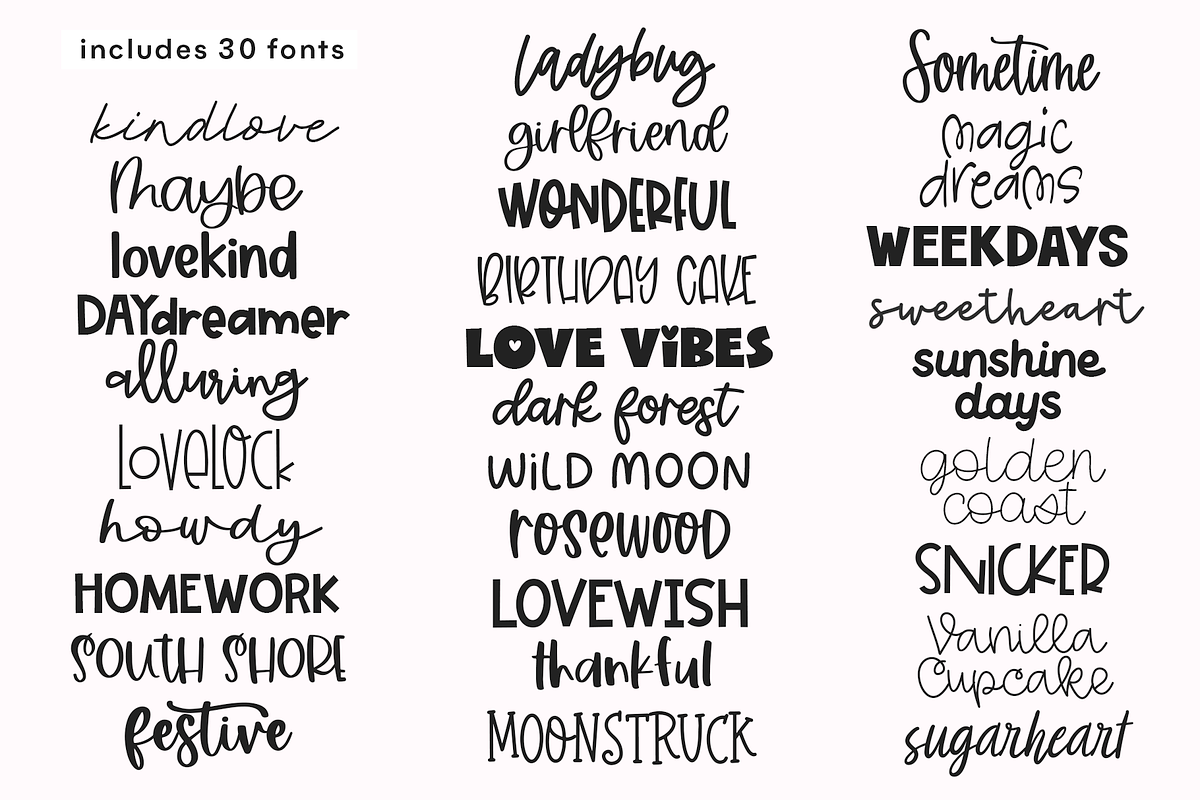 includes 30 fonts
kindlove
Maybe
lovekind
DAYdreamer
alluring
LOVELOCK
howdy
HOMEWORK
SOUTH SHORE
festive
ladybug
girlfriend
WONDERFUL
BIRTHDAY CAKE
LOVE ViBES
dark forest
WiLD MOON
rosewood
LOVEWISH
thankful
MOONSTRUCK
Sometime
magic
dreams
WEEKDAYS
sweetheart
sunshine
days
golden
coast
SNICKER
Vanilla
Cupcake
sugarheart